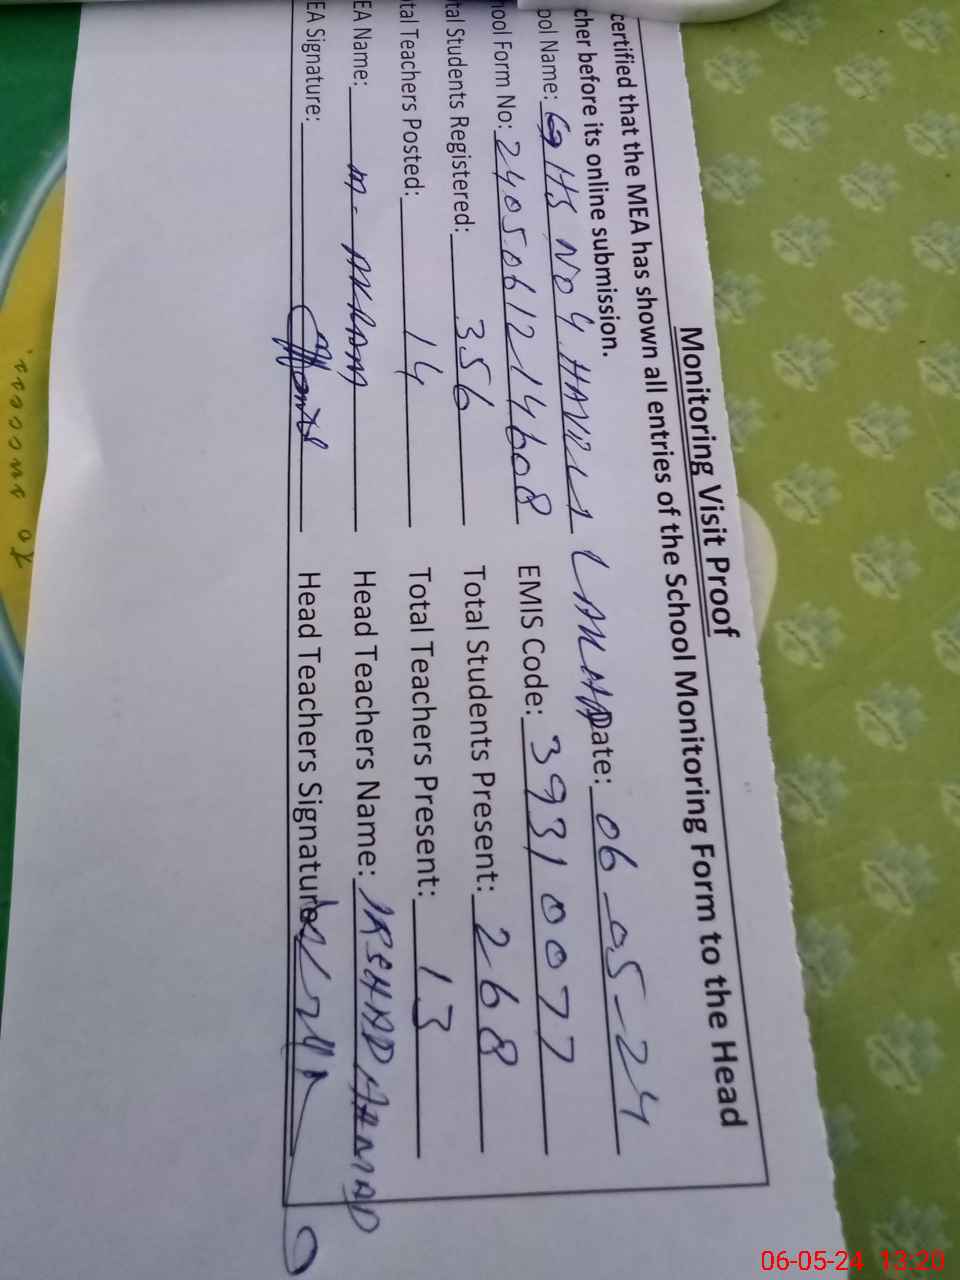 Monitoring Visit Proof
certified that the MEA has shown all entries of the School Monitoring Form to the Head
cher before its online submission.
ool Name: GHS NO 4 HAVELI LAKHA Date: 06-05-24
hool Form No: 2405061214608 EMIS Code: 39310077
tal Students Registered: 356 Total Students Present: 268
tal Teachers Posted: 14 Total Teachers Present: 13
EA Name: M. AKRAM Head Teachers Name: IRSHAD AHMAD
EA Signature: Head Teachers Signature:
06-05-24 13:20